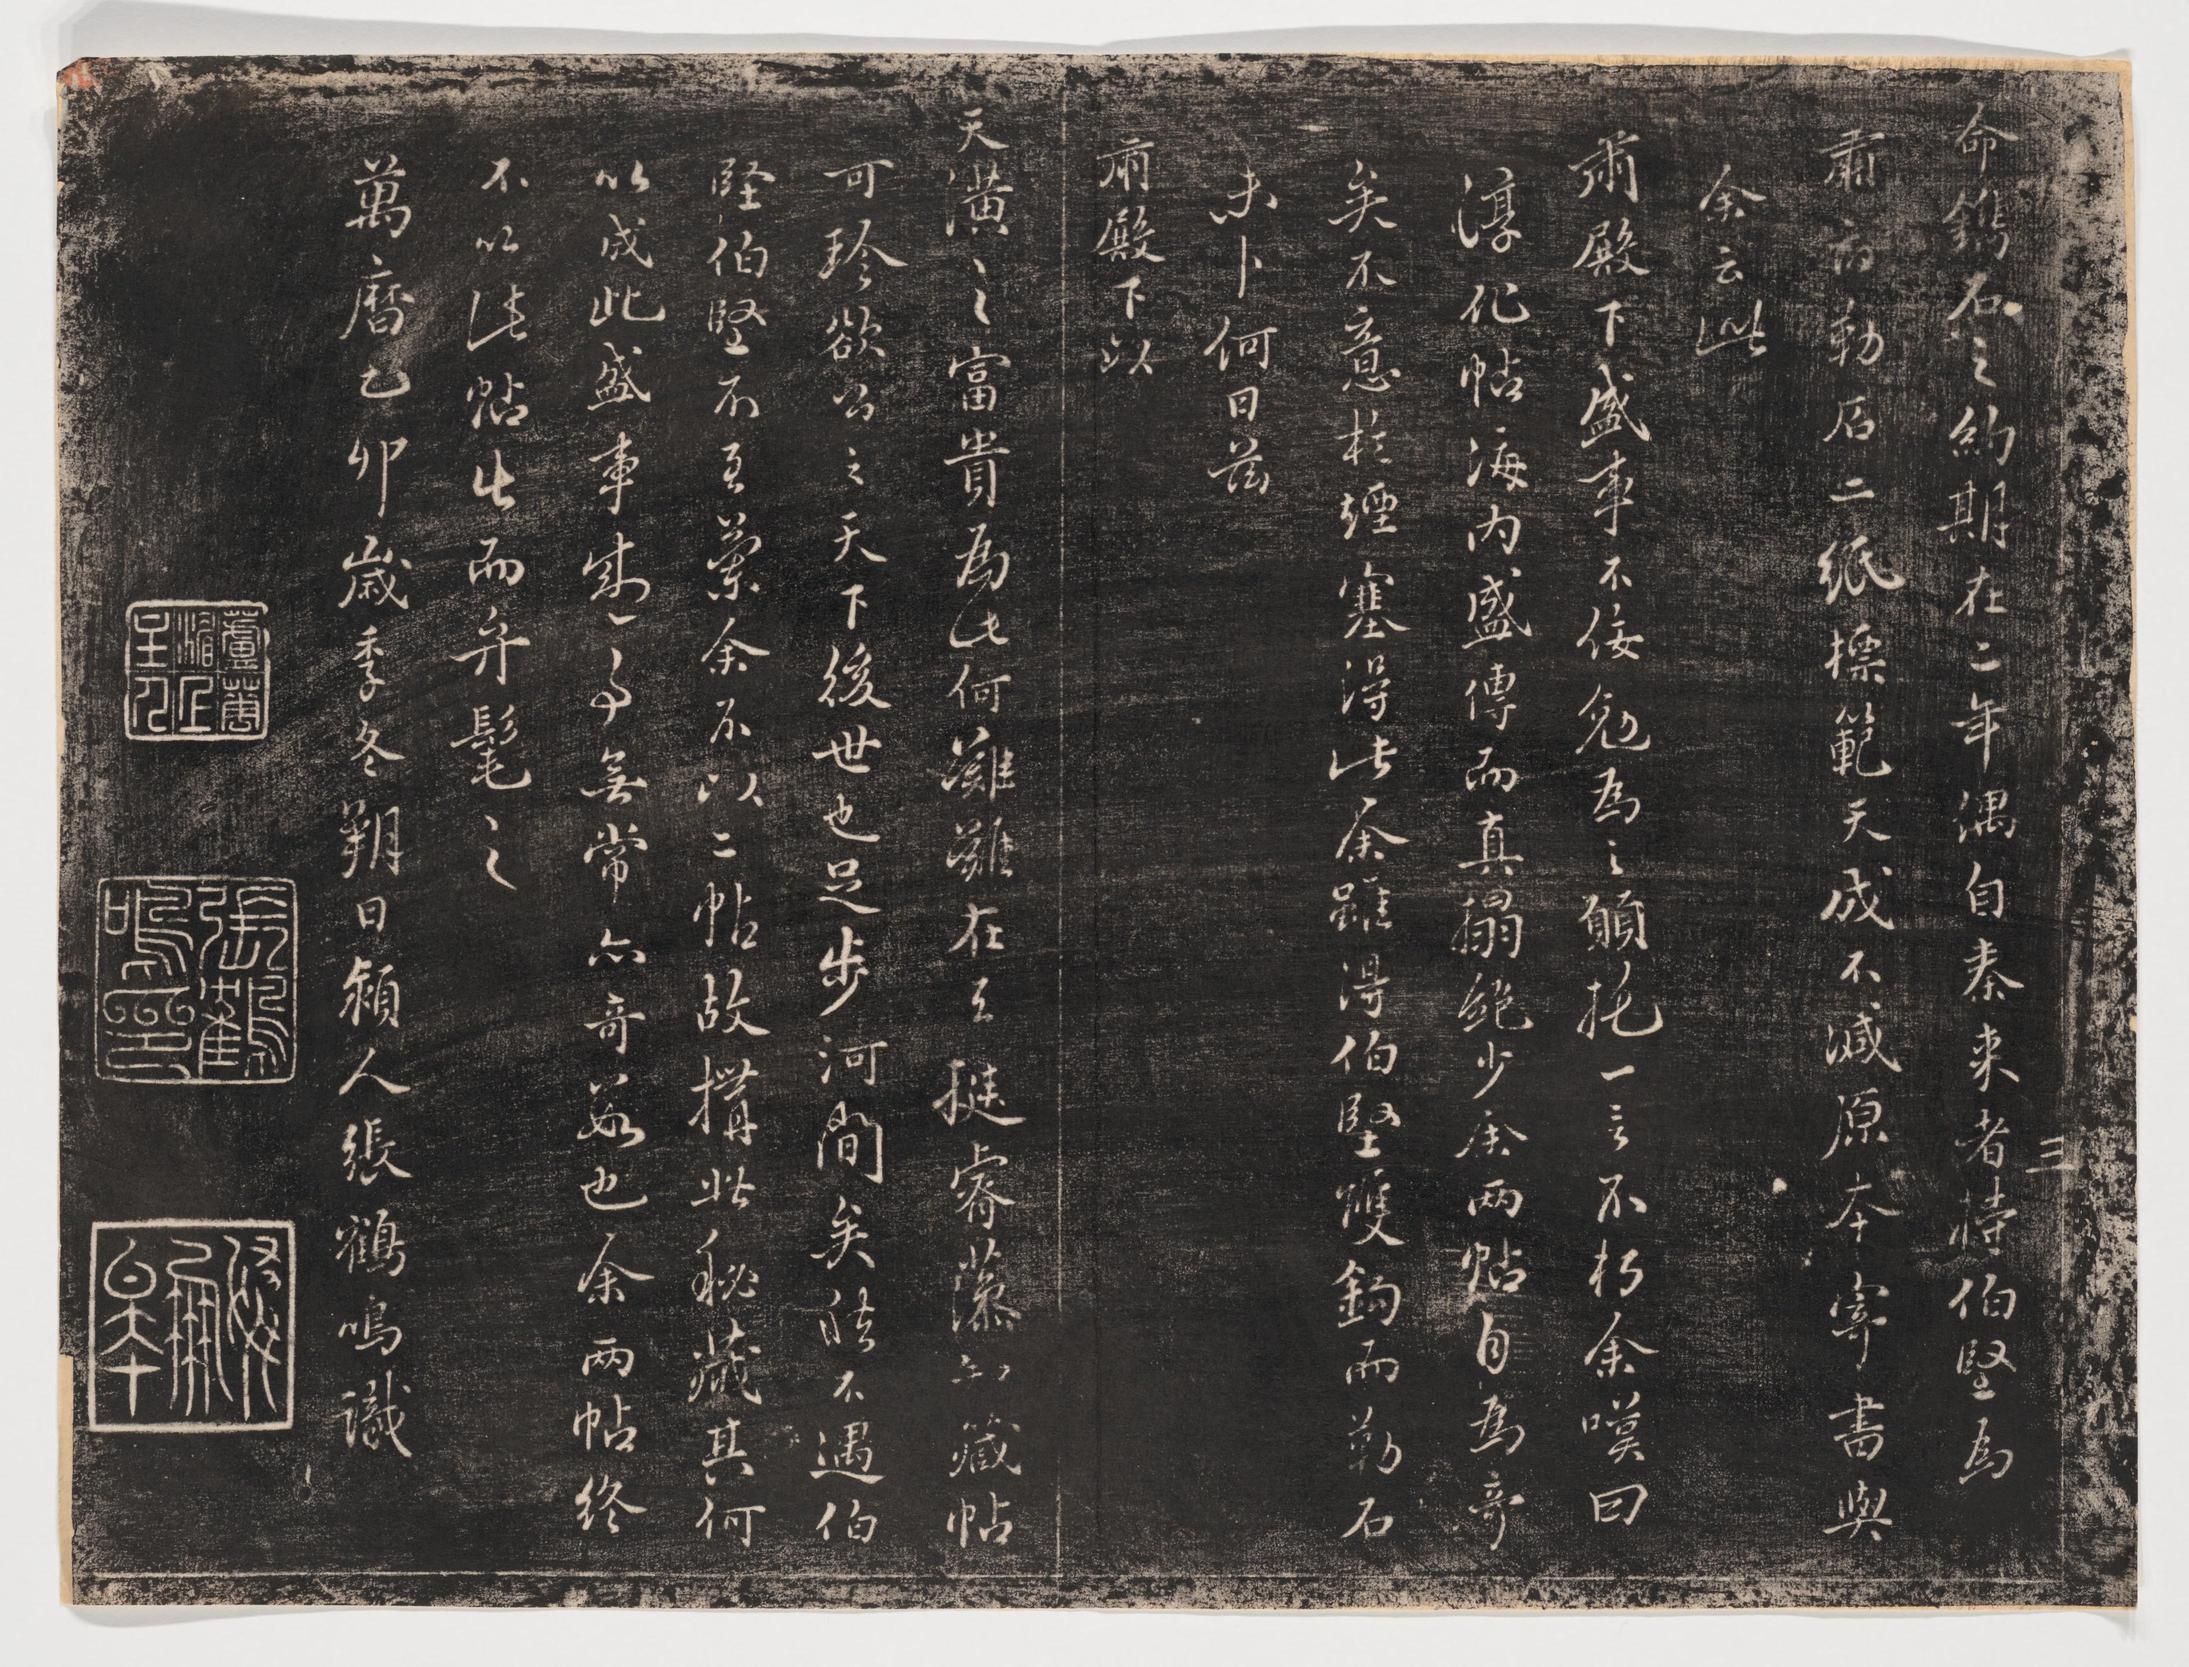 命鐫石之約期在二年偶自秦来者持伯堅為
肅府勒石二紙標範天成不減原本寄書與
余云此
肅殿下盛事不佞勉為之願托一言不朽余嘆曰
淳化帖海内盛傳而真搨絶少余两帖自為奇
矣不意於煙塞得此余雖得伯堅雙鉤而勒石
未卜何日茲
肅殿下以
天潢之富貴為此何難難在天挺睿藻以藏帖
可珍欲公之天下後世也足步河間矣然不遇伯
堅伯堅不至蘭余不以二帖故搆此秘藏其何
以成此盛事味一事無常亦奇品也余两帖終
不以法帖出而弁髦之
萬曆乙卯歲季冬朔日潁人張鶴鳴識
三
張鶴鳴印